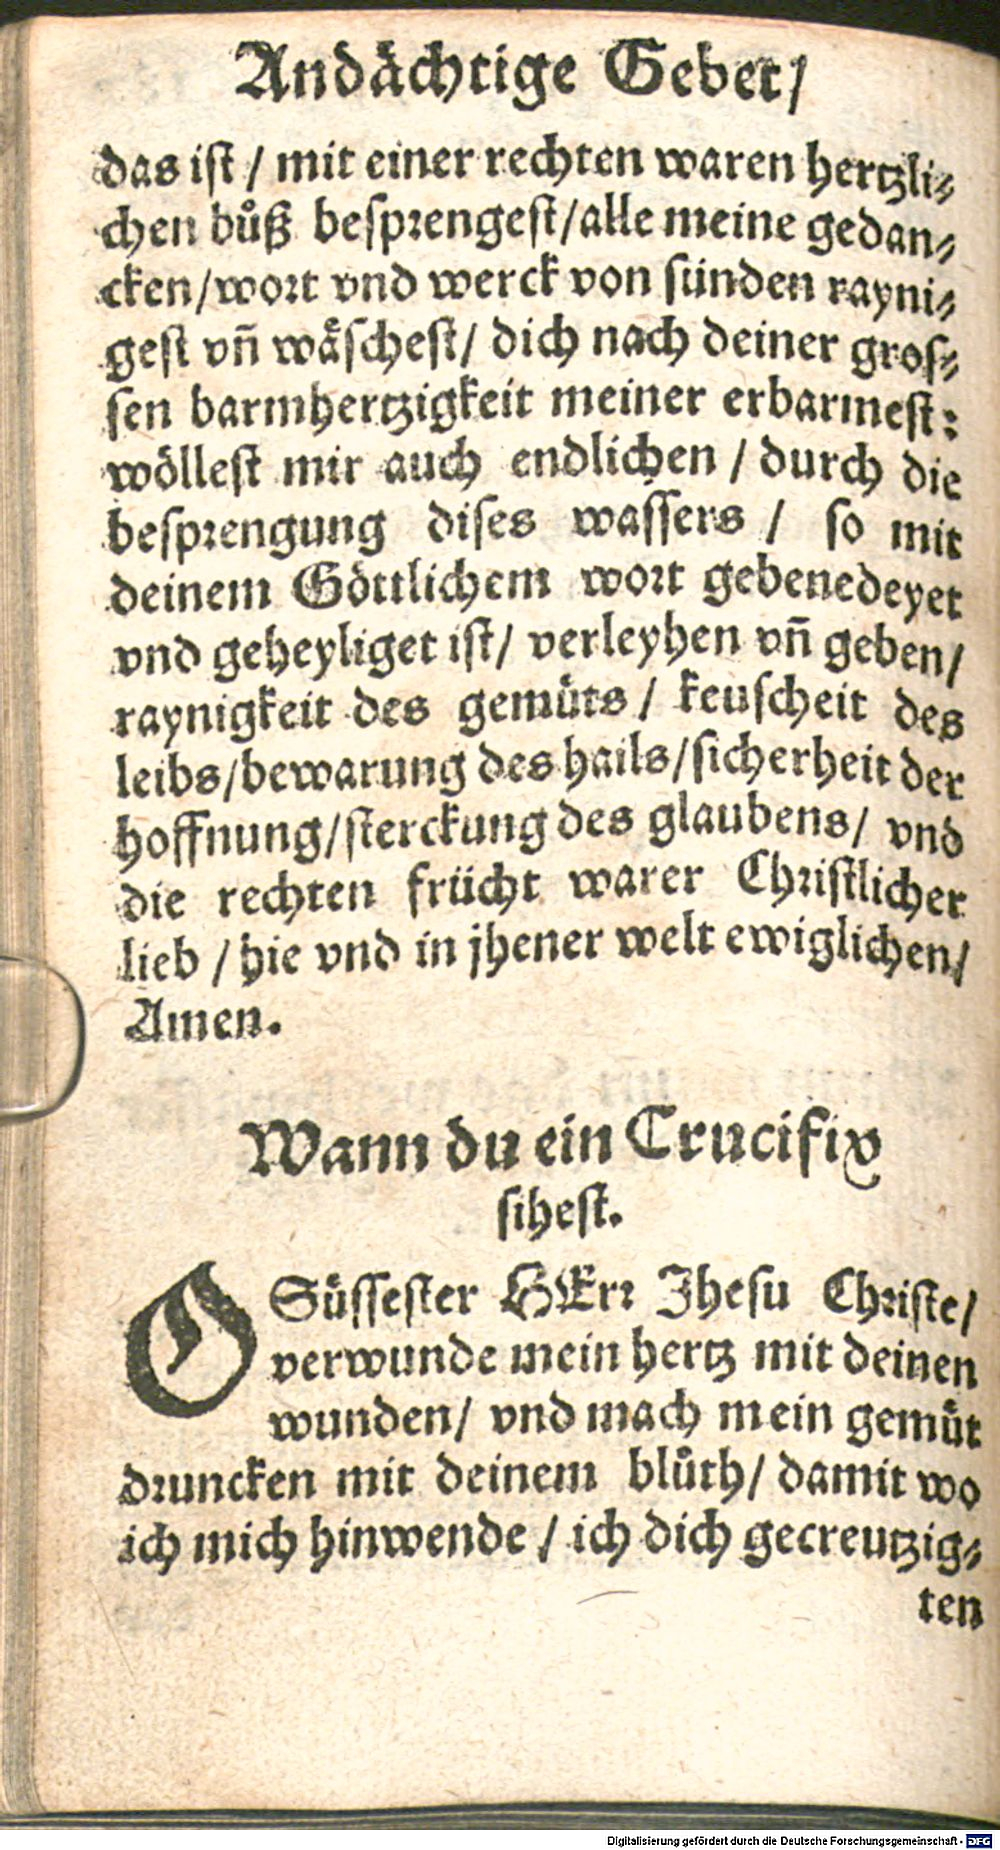 Andächtige Gebet/
das ist / mit einer rechten waren hertzli⸗
chen bůß besprengest/alle meine gedan⸗
cken/wort vnd werck von sünden rayni⸗
gest vñ wäschest/ dich nach deiner gros⸗
sen barmhertzigkeit meiner erbarmest:
wöllest mir auch endlichen / durch die
besprengung dises wassers / so mit
deinem Göttlichem wort gebenedeyet
vnd geheyliget ist/ verleyhen vñ geben/
raynigkeit des gemüts / keuscheit des
leibs/bewarung des hails/sicherheit der
hoffnung/sterckung des glaubens/ vnd
die rechten frücht warer Christlicher
lieb / hie vnd in jhener welt ewiglichen/
Amen.
Wann du ein Crucifix
sihest.
O Süssester HErr Jhesu Christe/
verwunde mein hertz mit deinen
wunden/ vnd mach mein gemüt
druncken mit deinem blůth/ damit wo
ich mich hinwende / ich dich gecreutzig⸗
ten
Digitalisierung gefördert durch die Deutsche Forschungsgemeinschaft - DFG